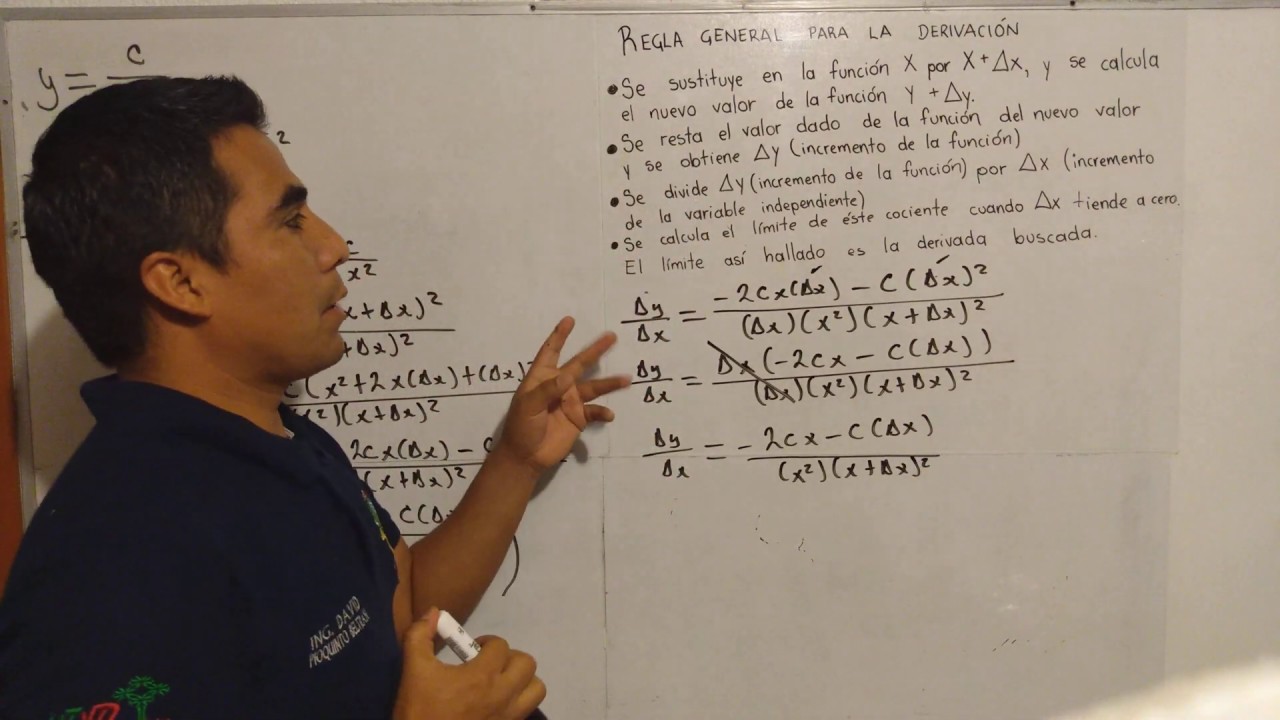 y = c
2
x²
x + Δx)²
+ Δx)²
(x² + 2x(Δx) + (Δx)²
²)(x + Δx)²
2cx(Δx) - c
(x + Δx)²
c(Δ
)
REGLA GENERAL PARA LA DERIVACIÓN
• Se sustituye en la función X por X + Δx, y se calcula
el nuevo valor de la función Y + Δy.
• Se resta el valor dado de la función del nuevo valor
y se obtiene Δy (incremento de la función)
• Se divide Δy (incremento de la función) por Δx (incremento
de la variable independiente)
• Se calcula el límite de éste cociente cuando Δx tiende a cero.
El límite así hallado es la derivada buscada.
Δy/Δx = -2cx(Δx) - c(Δx)² / (Δx)(x²)(x + Δx)²
Δy/Δx = Δx(-2cx - c(Δx)) / (Δx)(x²)(x + Δx)²
Δy/Δx = -2cx - c(Δx) / (x²)(x + Δx)²
ING. DAVID